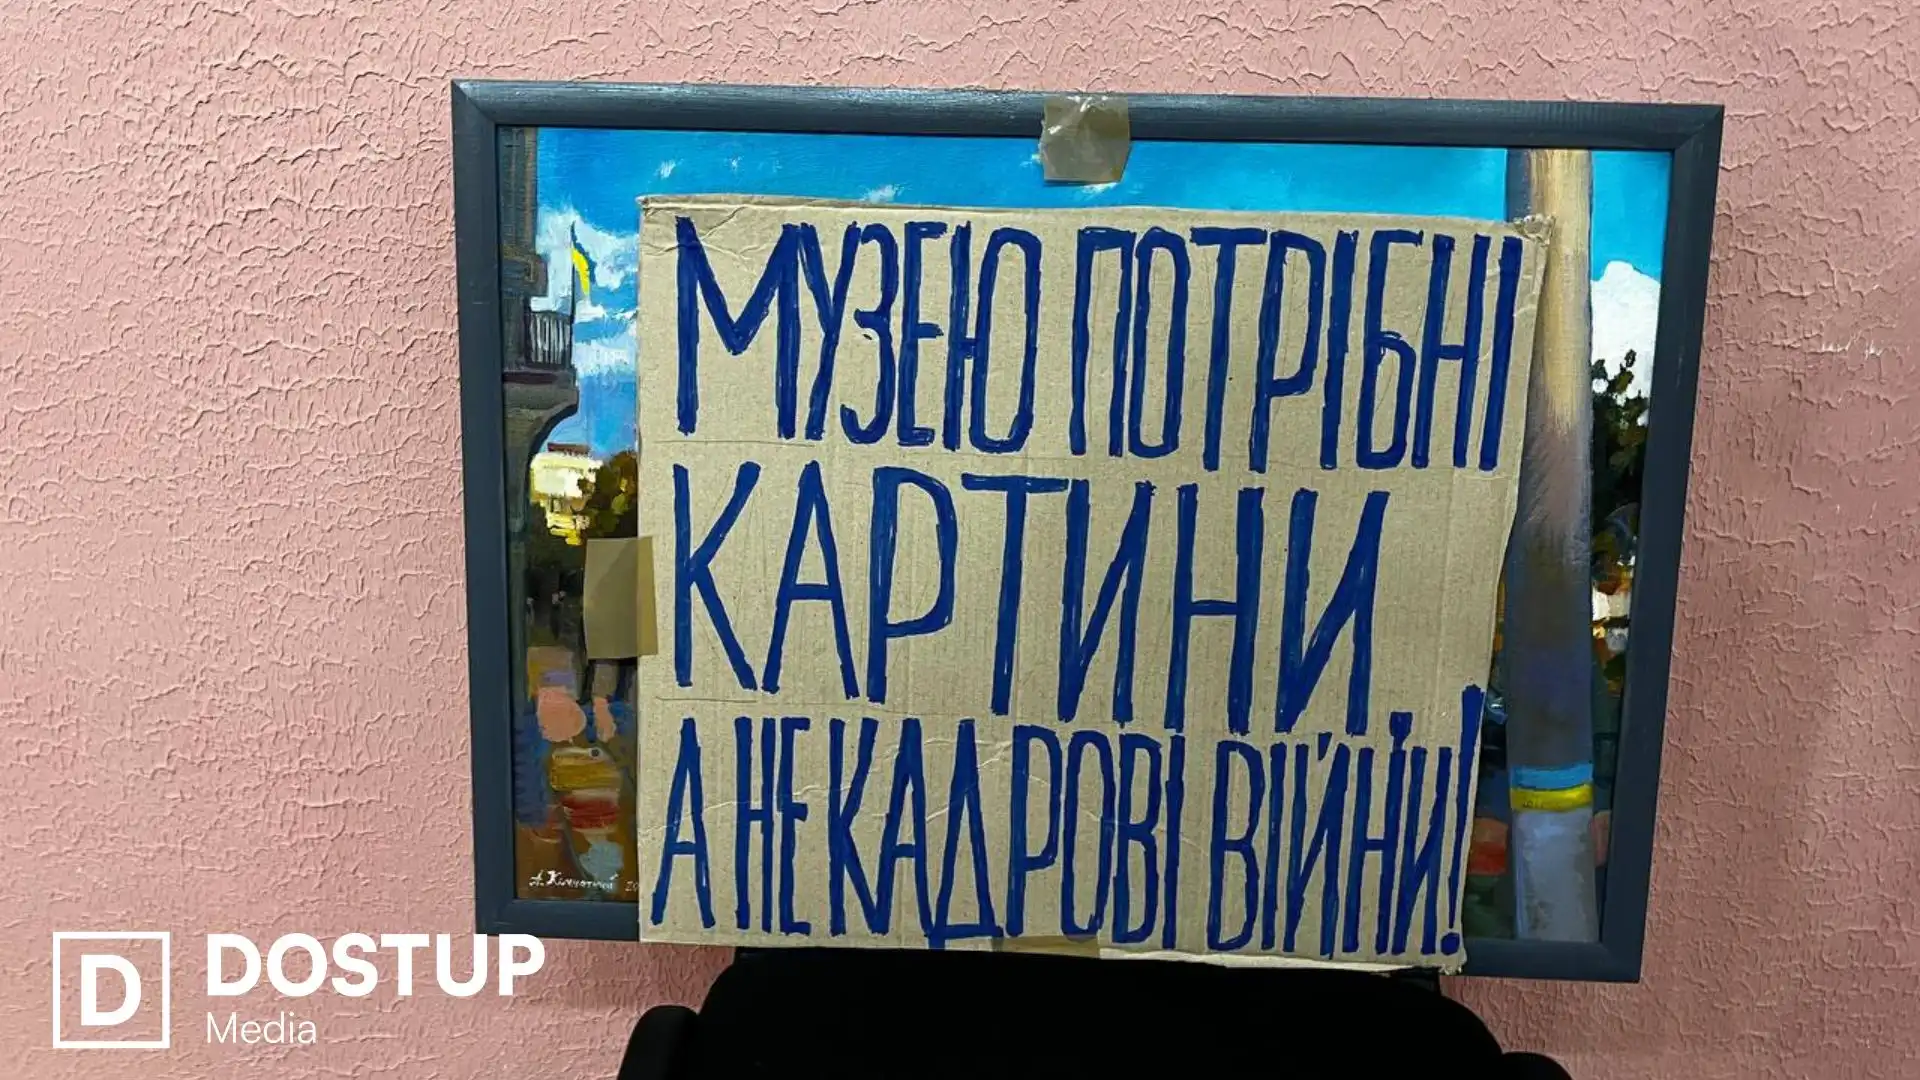 МУЗЕЮ ПОТРІБНІ
КАРТИНИ,
А НЕ КАДРОВІ ВІЙНИ!
D DOSTUP
Media